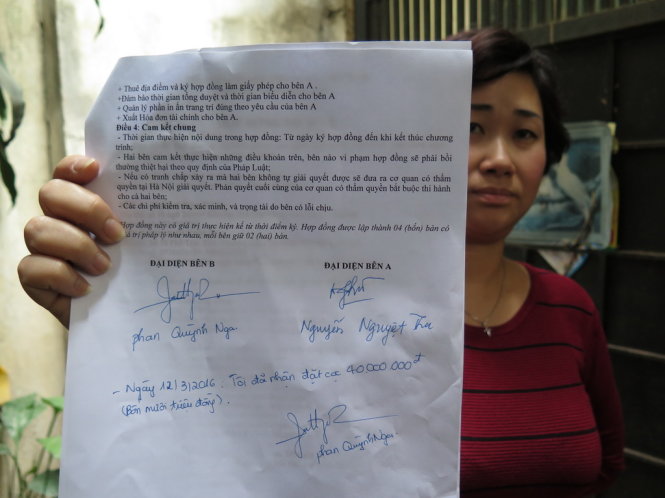 + Thuê địa điểm và ký hợp đồng làm giấy phép cho bên A .
+Đảm bảo thời gian tổng duyệt và thời gian biểu diễn cho bên A
+ Quản lý phần in ấn trang trí đúng theo yêu cầu của bên A
+ Xuất Hóa đơn tài chính cho bên A.
Điều 4: Cam kết chung
- Thời gian thực hiện nội dung trong hợp đồng: Từ ngày ký hợp đồng đến khi kết thúc chương
trình;
- Hai bên cam kết thực hiện những điều khoản trên, bên nào vi phạm hợp đồng sẽ phải bồi
thường thiệt hại theo quy định của Pháp Luật;
- Nếu có tranh chấp xảy ra mà hai bên không tự giải quyết được sẽ đưa ra cơ quan có thẩm
quyền tại Hà Nội giải quyết. Phán quyết cuối cùng của cơ quan có thẩm quyền bắt buộc thi hành
cho cả hai bên;
- Các chi phí kiểm tra, xác minh, và trọng tài do bên có lỗi chịu.
Hợp đồng này có giá trị thực hiện kể từ thời điểm ký. Hợp đồng được lập thành 04 (bốn) bản có
trị pháp lý như nhau, mỗi bên giữ 02 (hai) bản.
ĐẠI DIỆN BÊN B ĐẠI DIỆN BÊN A
Phan Quỳnh Nga. Nguyễn Nguyệt Thu
- Ngày 12/3/2016. Tôi đã nhận đặt cọc 40.000.000đ
(Bốn mươi triệu đồng).
phan Quỳnh Nga